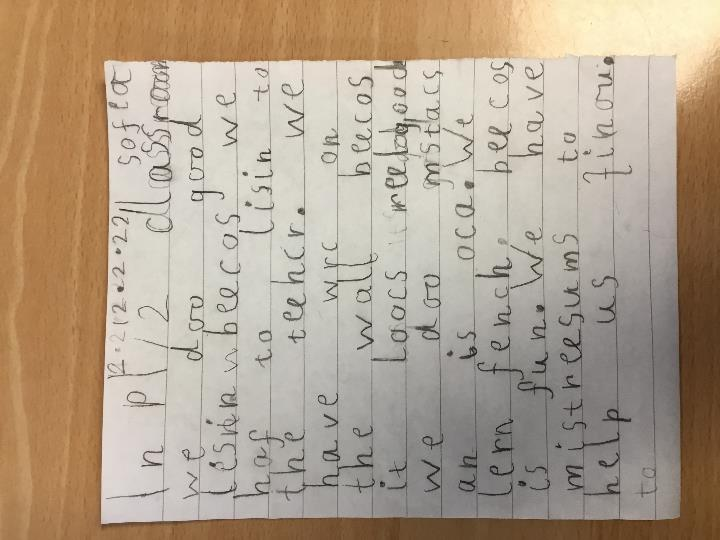 12.2.2.22 Sofea
In p/2 classroom
we doo good
lesin beecos we
haf to lisin to
the teehcr. We
have wrc on
the wall beecos
it loocs reely good
we doo mstacs
an is oca. We
lern fench, beecos
is fun. We have
mistreesums to
help us finou.
to